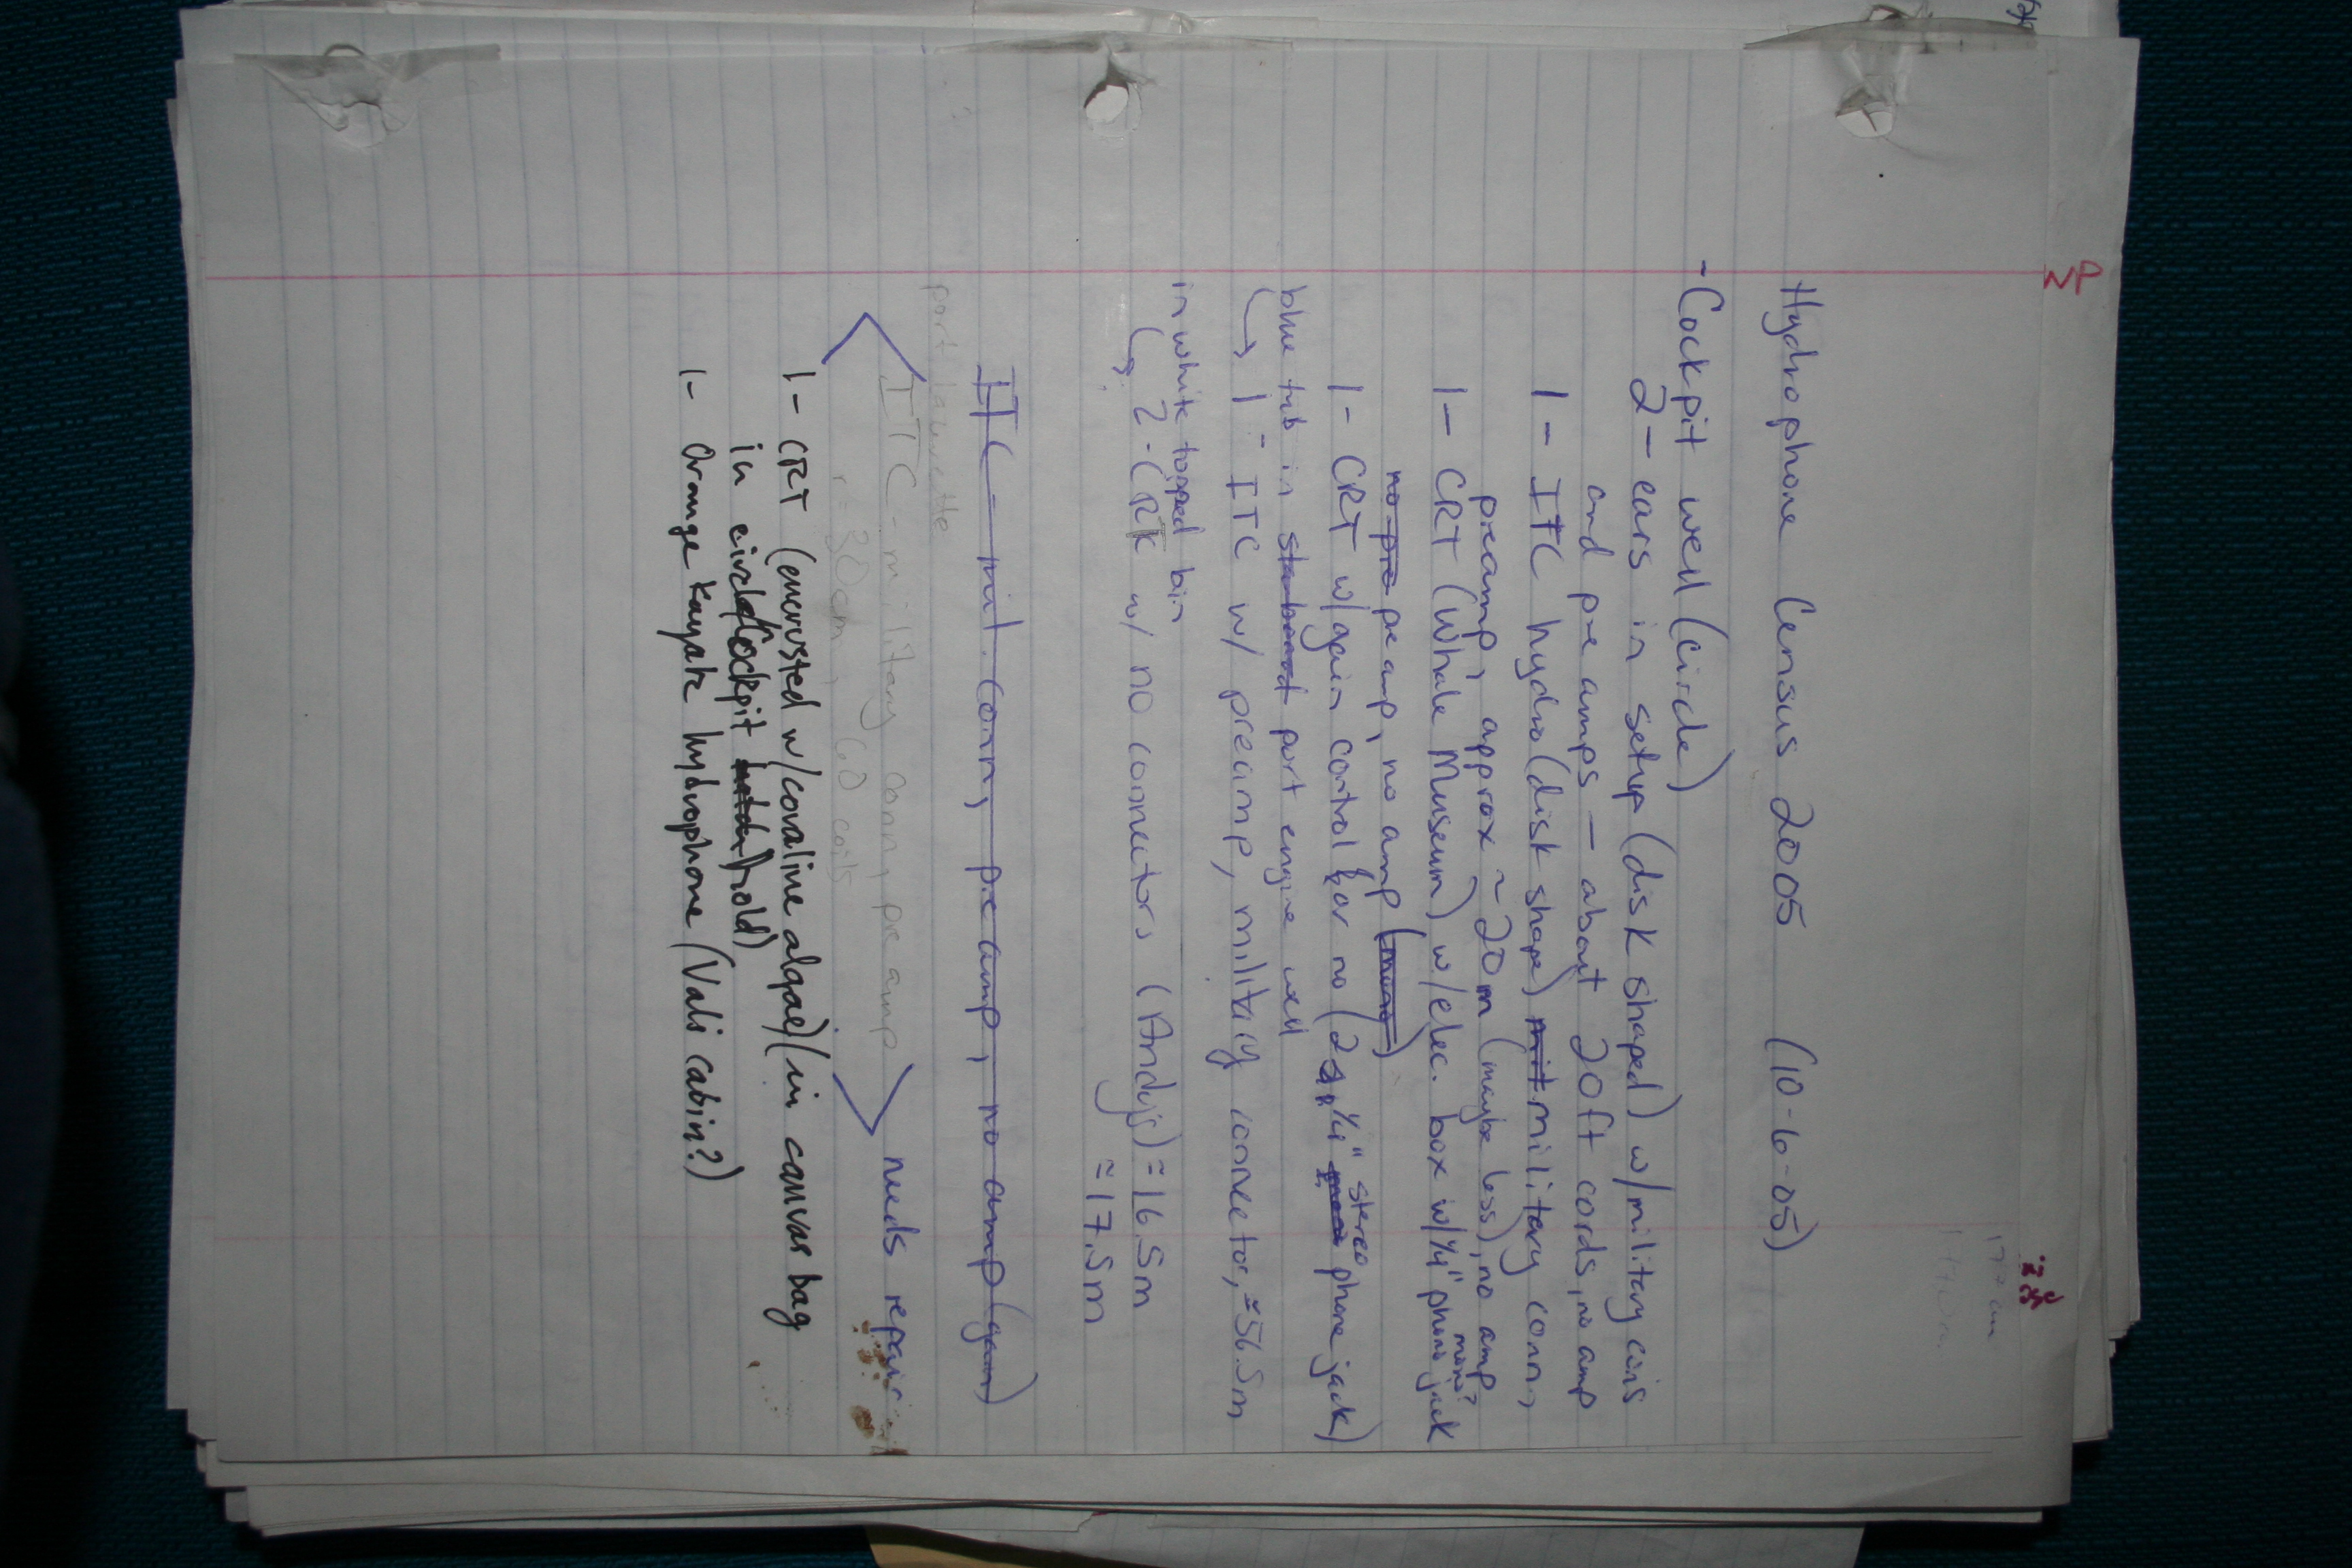 NP
Hydrophone Census 2005 (10-6-05)
- Cockpit well (circle)
2 - ears in setup (disk shaped) w/military conns
and pre amps - about 20ft cords, no amp
1 - ITC hydro (disk shape) mil military conn,
preamp, approx ~20m (maybe less), no amp
1 - CRT (Whale Museum) w/elec. box w/ 1/4" phono jack
mono?
no pre pre amp, no amp
1 - CRT w/gain control for no (2 1/4" phone jack)
stereo
blue tub in starboard port engine well
1 - ITC w/ preamp, military connector, ≈56.5m
in white topped bin
2 - CRT w/ no connectors (Andy's) ≈ 16.5m
≈ 17.5m
ITC - mil. conn, pre amp, no amp (gain)
port lazurette
ITC - military conn, pre amp
needs repair
r = 30cm, 60 coils
1 - CRT (encrusted w/coraline algae) (in canvas bag
in circle/Cockpit hold)
1 - Orange Kayak hydrophone (Vals cabin?)